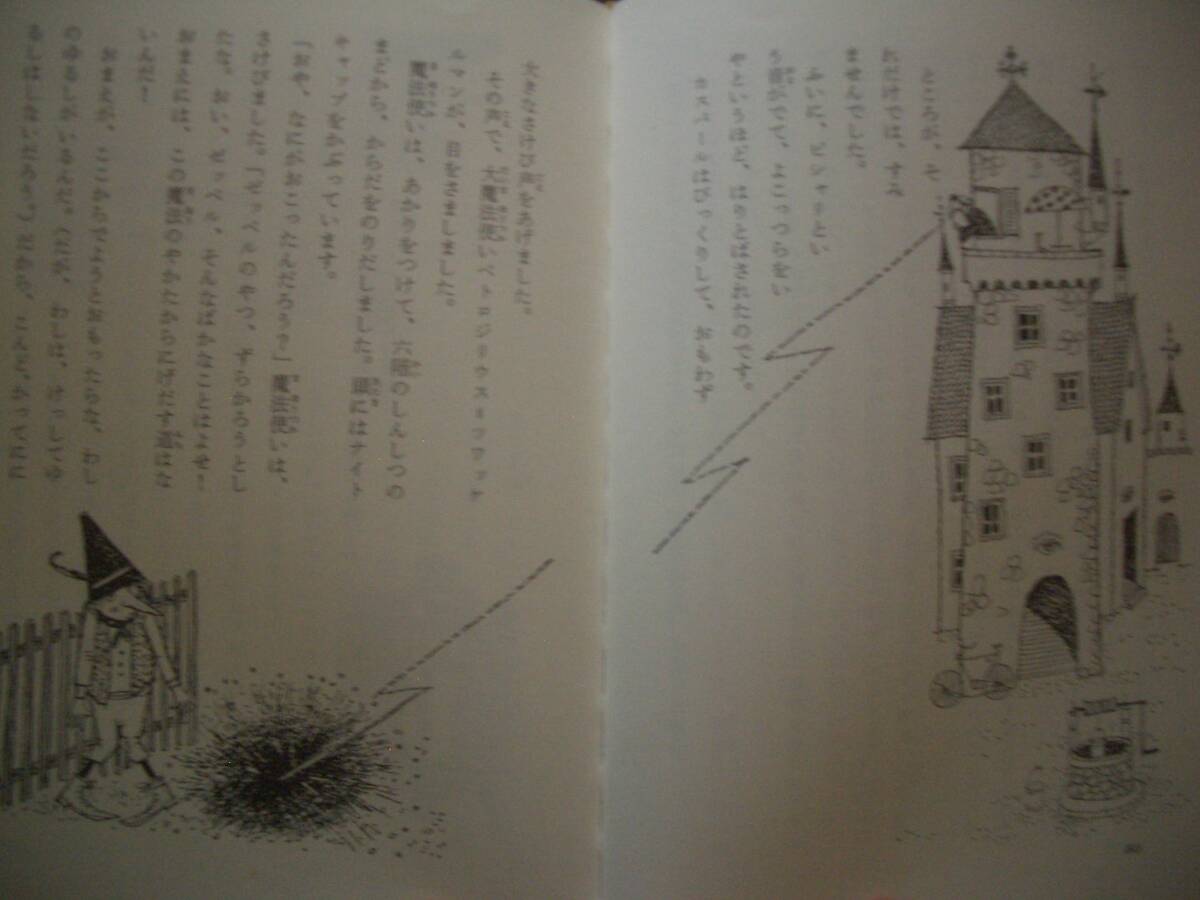 ところが、そ
れだけでは、すみ
ませんでした。
ふいに、ピシャリとい
う音がして、よこっつらをい
やというほど、はりとばされたのです。
カスパールはびっくりして、おもわず
大きなさけび声をあげました。
その声で、大魔法使いペトロジリウス=ツワッケ
ルマンが、目をさましました。
魔法使いは、あかりをつけて、六階のしんしつの
まどから、からだをのりだしました。頭にはナイト
キャップをかぶっています。
「おや、なにがおこったんだろう?」魔法使いは、
さけびました。「ゼッペルのやつ、ずらかろうとし
たな。おい、ゼッペル、そんなばかなことはよせ!
おまえには、この魔法のやかたからにげだす道はな
いんだ!
おまえが、ここからでようとおもったらだ、わし
のゆるしがいるんだ。(だが、わしは、けっしてゆ
るしはしないだろう。)だから、こんど、かってに